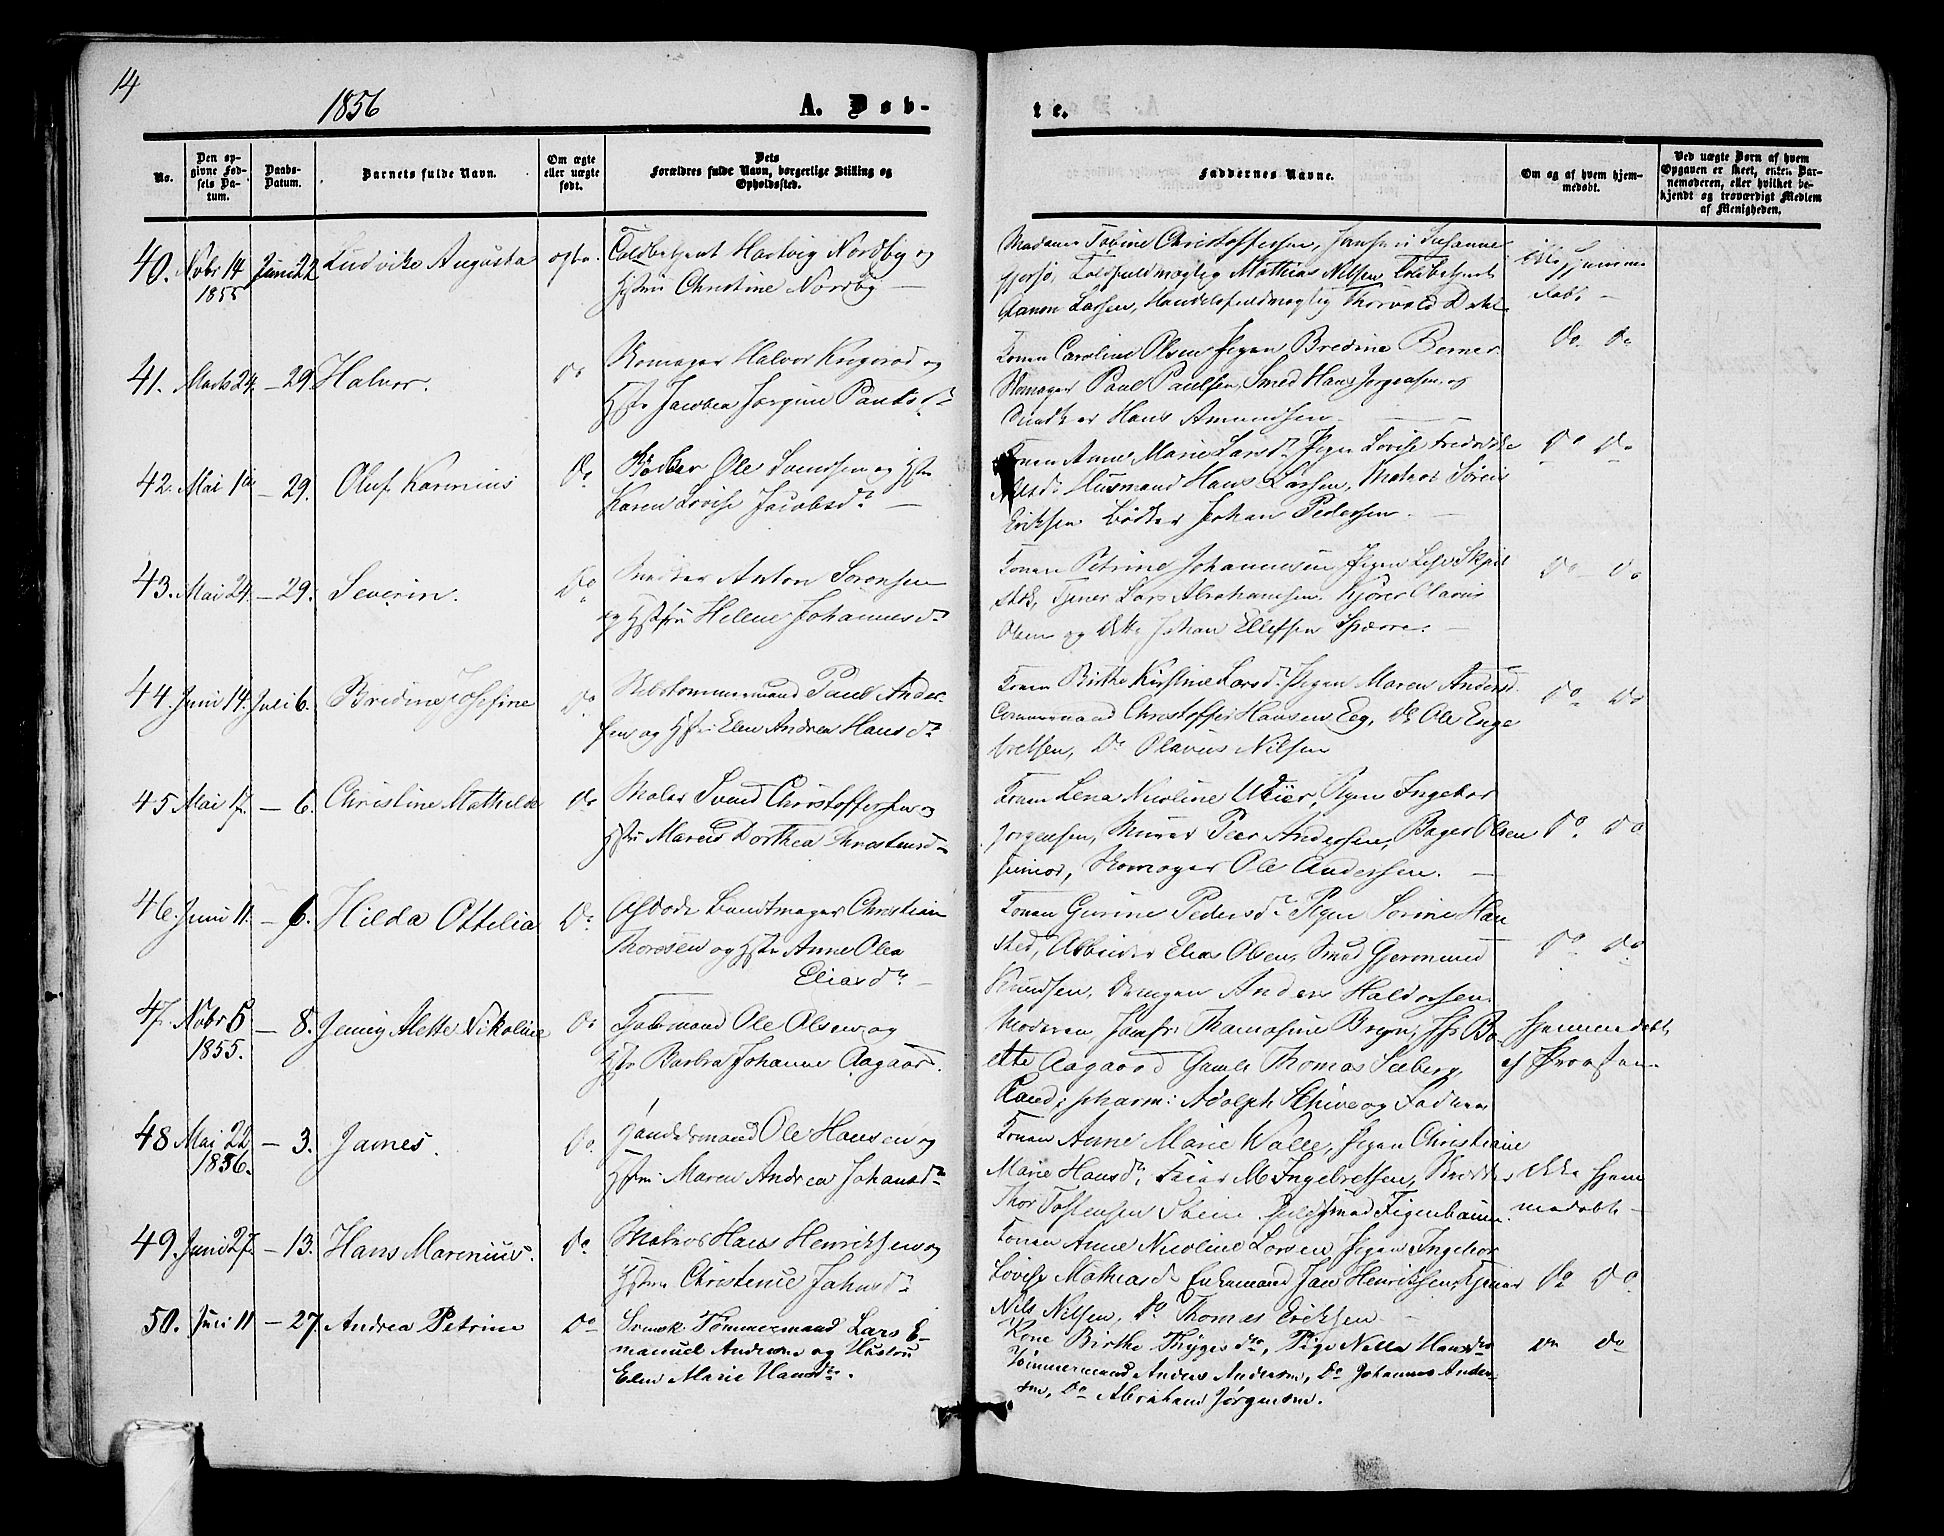 14
1856
A. Døb-
te.
No.
Den op-
givne Fød-
sels Da-
tum.
Daabs-
Datum.
Barnets fulde Navn.
Om ægte
eller uægte
født.
Dets
Forældres fulde Navn, borgerlige Stilling og
Opholdssted.
Faddernes Navne.
Om og af hvem hjem-
medøbt.
Ved uægte Børn af hvem
Opgaven er skeet, enten Bar-
nemoderen, eller hvilket be-
kjendt og troværdigt Medlem
af Menigheden.
40. Nobr 14 Juni 22 Ludvike Augusta ægte. Toldbetjent Hartvig Nordby og
1855
Hstru Christine Nordby —
Madame Tobine Christoffersen, Jomfru Susanne
Toldfuldmægtig Mathias Nilsen, Toldbetjent
Larsen, Handelsfuldmægtig Thorvald Dahl
ikke hjemme
døbt —
41. Marts 24. — 29 Halvor. do Skomager Halvor Krogsrød og
Hstru Jacobea Jorgine Paulsd.
Konen Caroline Olsen Pigen Bredine Berner
Skomager Paul Paulsen, Smed Hans Jorgensen og
Snedker Hans Amundsen.
Do Do
42. Mai 10 — 29. Oluf Karenius Do Bødker Ole Svendsen og Hstru
Karen Lovise Jacobsdr —
Konen Anne Marie Larsdr Pigen Lovise Fredrikke
Nilsdr Husmand Hans Larsen, Matros Søren
Eriksen Bødker Johan Pedersen.
Do Do
43. Mai 24. — 29. Severin. Do Snedker Anton Sørensen
og Hstru Helene Johannesdr
Konen Petrine Johannesen Pigen
Tjener Lars Abrahamsen. Kjører Olavus
Olsen og Ditto Johan Ellefsen Sparre. —
Do Do
44. Juni 14. Juli 6. Bredine Josefine Do Skibstømmermand Paul Ander-
sen og Hstru Elen Andrea Hansdr
Konen Birthe Kirstine Larsdr Pigen Maren Andersd.
Tømmermand Christoffer Hansen Eeg, do Ole Enge
bretsen, Do Olavus Nilsen
Do Do
45 Mai 17. — 6. Christine Mathilde do Maler Svend Christoffersen og
Hstru Maren Dorthea Thorstensd —
Konen Lena Nicoline Meier, Pigen Ingebor
Jorgensen, Murer Peer Andersen, Bager Olsen
junior, Skomager Ole Andersen. —
Do Do
46. Juni 11. — 6. Hilda Ottilia Do Afdøde Buntmager Christian
Thoresen og Hstru Anne Olea
Eliasdr —
Konen Gurine Pedersdr Pigen Sorine Han
sted, Arbeider Elias Olsen, Smed Germund
Knudsen, Anders Haldorsen.
Do Do
47. Nobr 5 — 8. Jenny Alette Nikoline Do Ole Olsen og
1855.
Hstru Barbra Johanne Aagaard.
Moderen, Jomfr: Thomasine Bryn, Jfr Bo-
lette Aagaard Thomas Seeberg,
Cand: pharm: Adolph Schive og Faderen
Hjemmedøbt
af Provsten —
48 Mai 22 — 3. James. Do. Handelsmand Ole Hansen og
1856.
Hstru Maren Andrea Johansdr
Konen Anne Marie Walle, Pigen Christiane
Marie Hansdr, M. Ingebretsen, Skrædder
Thor Tostensen Stein Guldsmed Figenbaum.
Ikke hjem
medøbt —
49. Juni 27. — 13. Hans Marenius. Do Matros Hans Henriksen og
Hstru Christence Johnsdr
Konen Anne Nicoline Larsen Pigen Ingebor
Lovise Mathiasd. Enkemand Jan Henriksen, Tjener
Nils Nilsen, do Thomas Eriksen —
Do Do
50. Juni 11 — 27. Andrea Petrine Do Svensk Tømmermand Lars E-
manuel Andersen og Hustru
Elen Marie Hansdtr.
Kone Birthe Thygesdtr, Pige Nella Hansdtr
Tømmermand Anders Andersen, Do Johannes Ander-
sen, Do Abraham Jørgensen.
Do Do